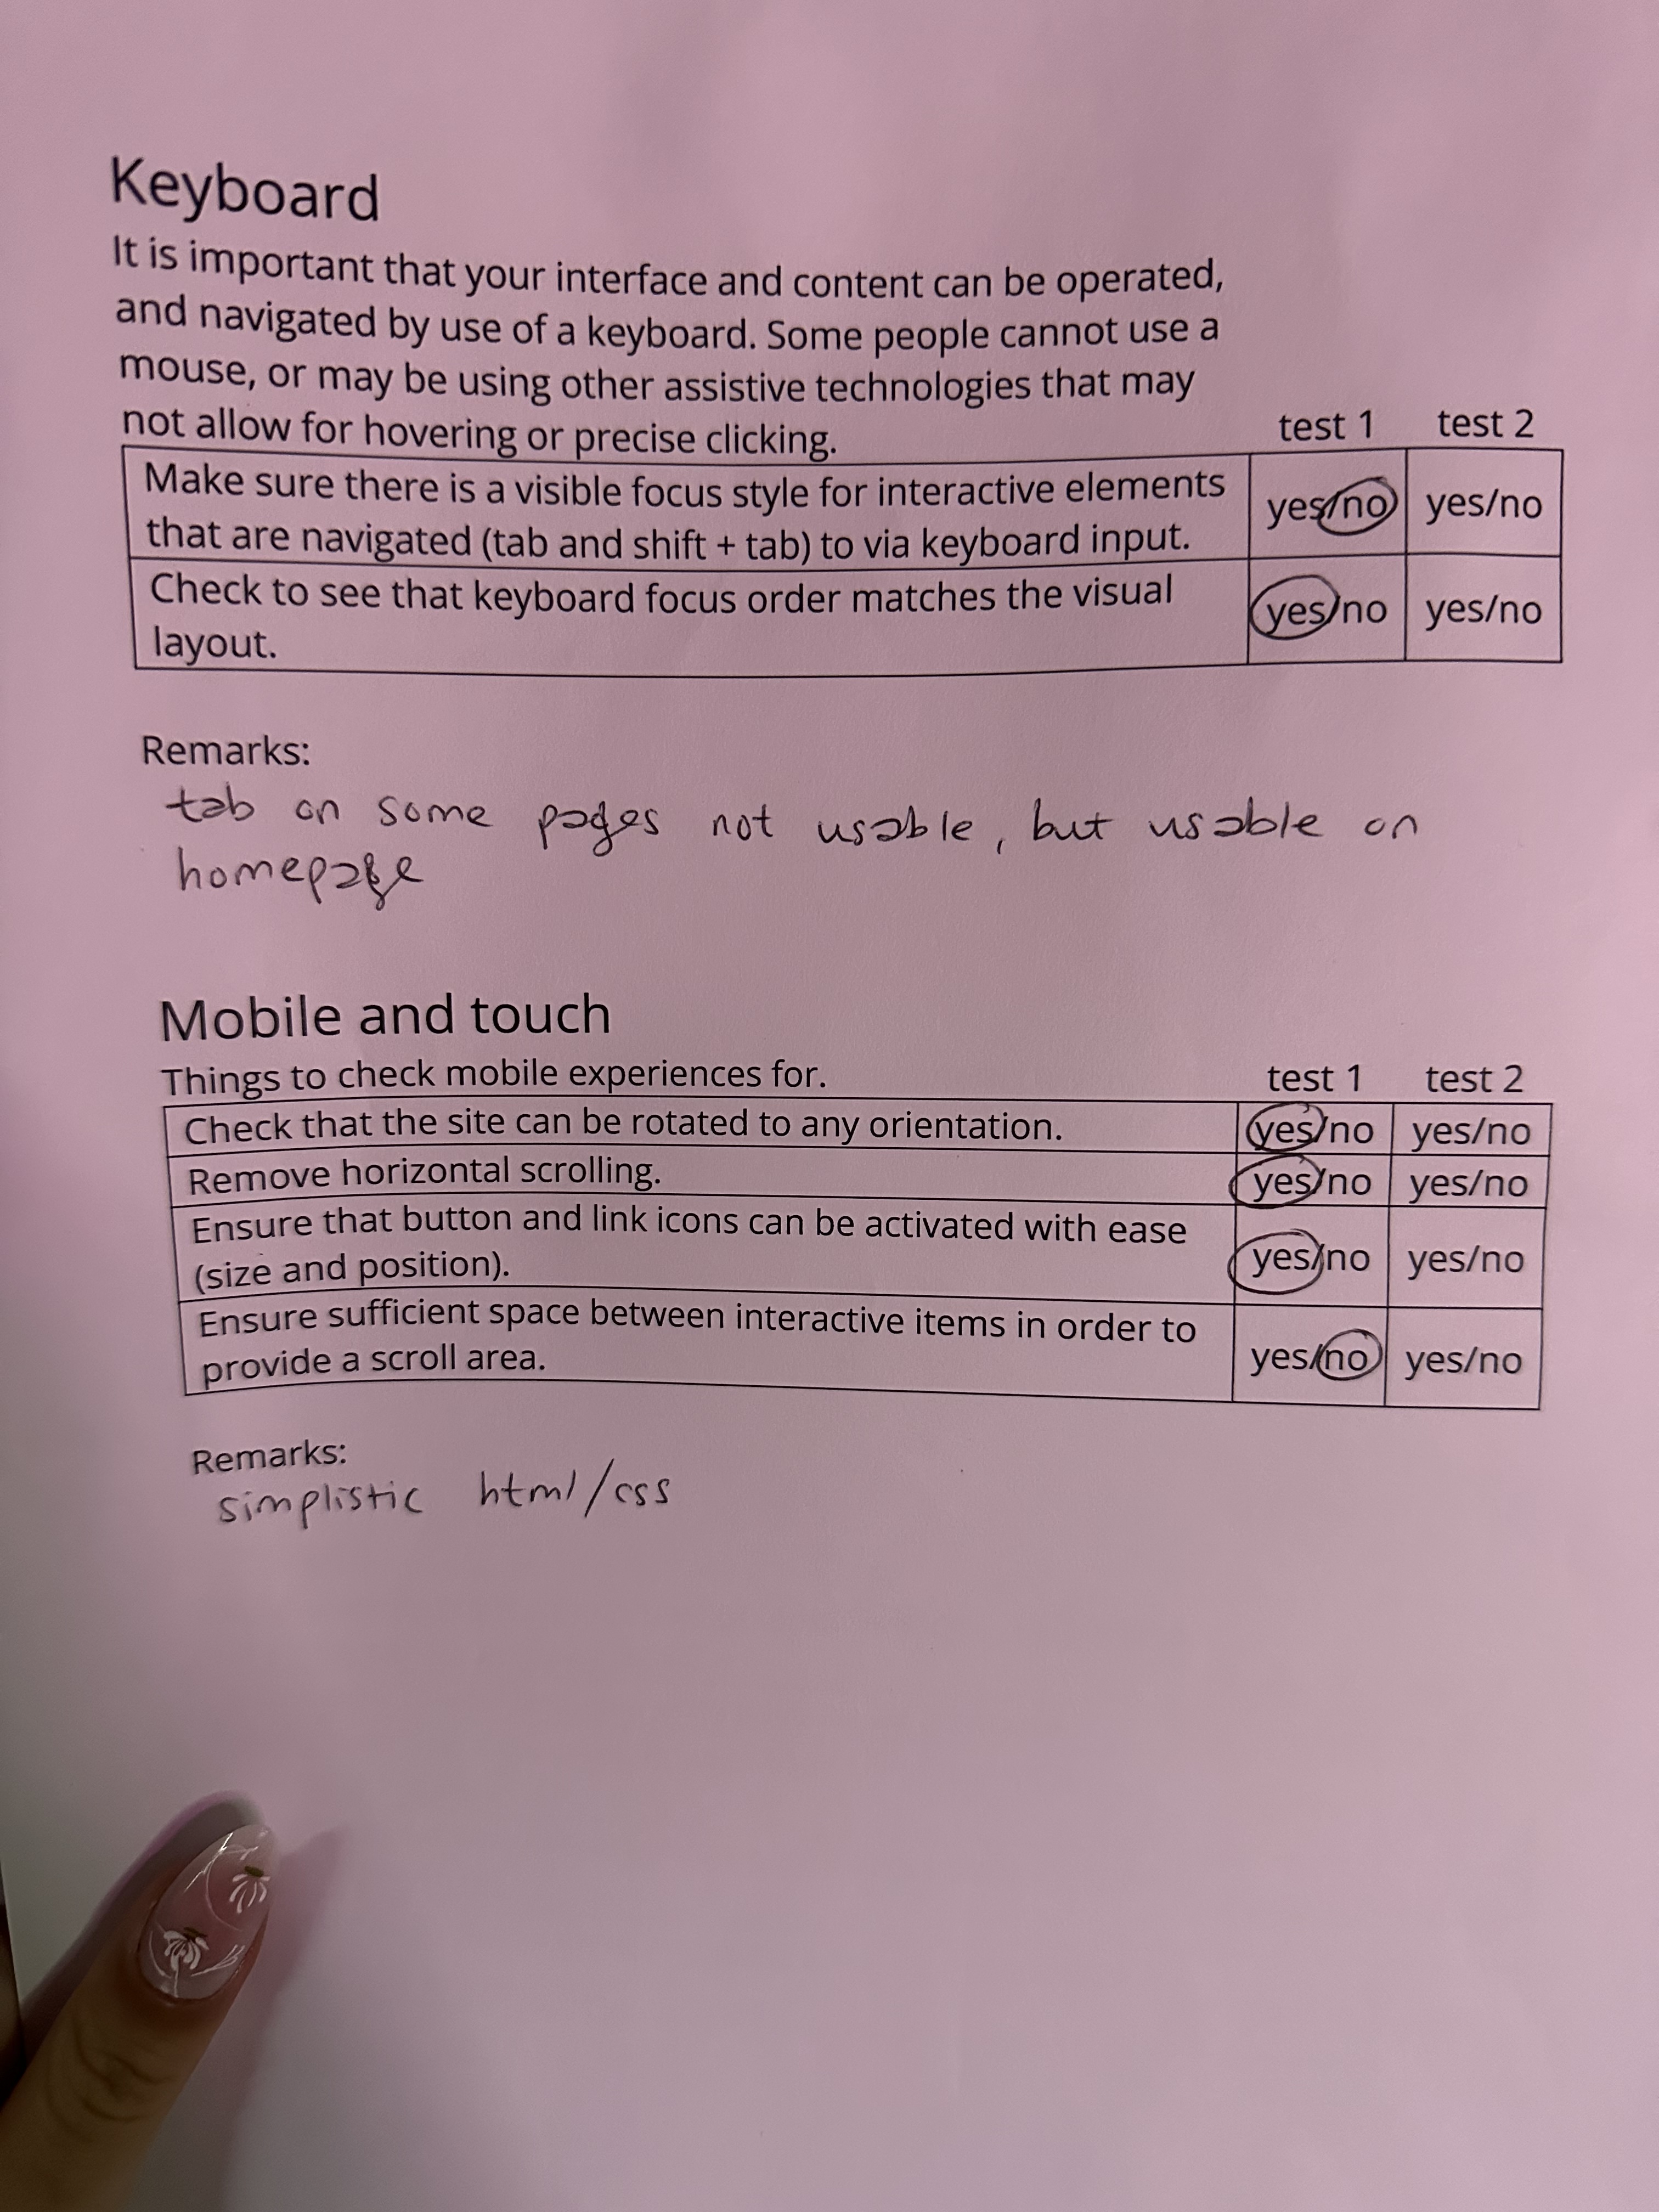 Keyboard
It is important that your interface and content can be operated,
and navigated by use of a keyboard. Some people cannot use a
mouse, or may be using other assistive technologies that may
not allow for hovering or precise clicking.
test 1 test 2
Make sure there is a visible focus style for interactive elements
that are navigated (tab and shift + tab) to via keyboard input.
yes/no yes/no
Check to see that keyboard focus order matches the visual
layout.
yes/no yes/no
Remarks:
tab on some pages not usable, but usable on
homepage
Mobile and touch
Things to check mobile experiences for.
test 1 test 2
Check that the site can be rotated to any orientation. yes/no yes/no
Remove horizontal scrolling. yes/no yes/no
Ensure that button and link icons can be activated with ease
(size and position).
yes/no yes/no
Ensure sufficient space between interactive items in order to
provide a scroll area.
yes/no yes/no
Remarks:
simplistic html/css